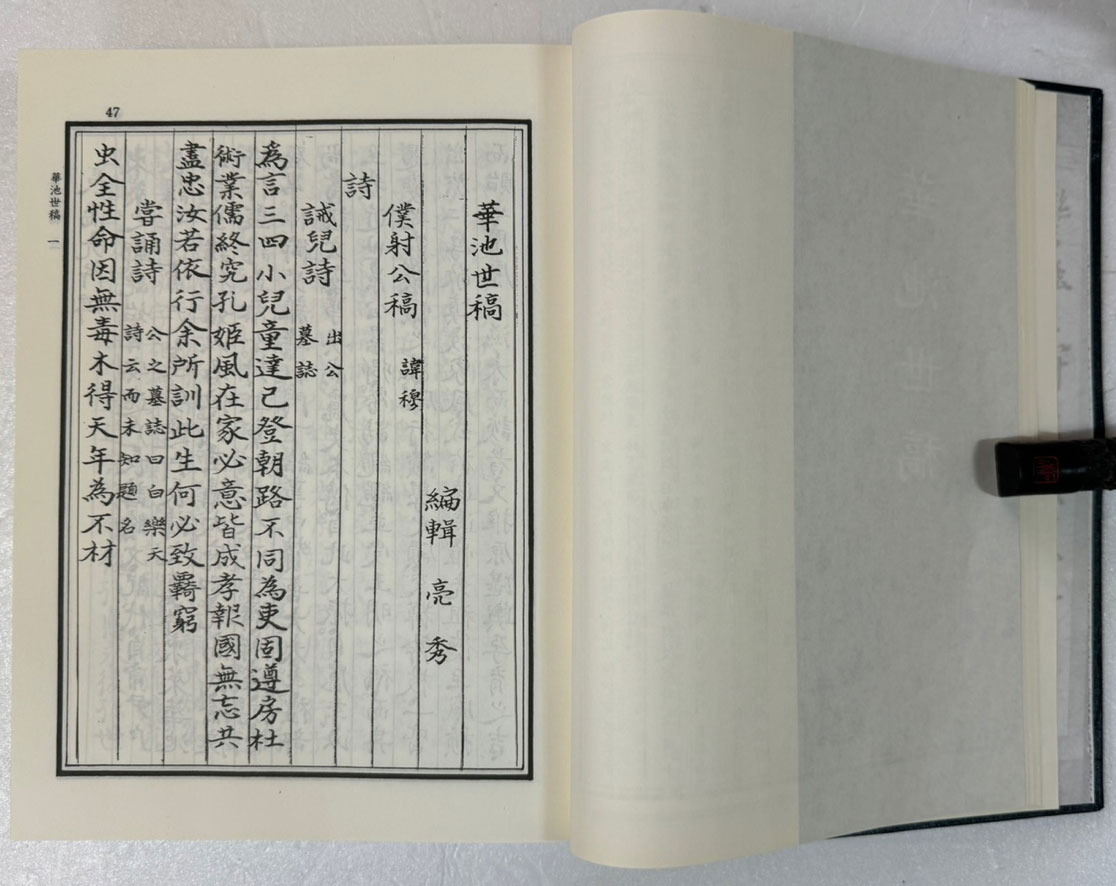 47
華池世稿 一
華池世稿
編輯 亮 秀
僕射公稿 諱穆
詩
誡兒詩 出公墓誌
為言三四小兒童達已登朝路不同為吏固遵房杜
術業儒終究孔姬風在家必意皆成孝報國無忘共
盡忠汝若依行余所訓此生何必致羇窮
嘗誦詩 公之墓誌曰白樂天詩云而未知題名
虫全性命因無毒木得天年為不材
華池世稿